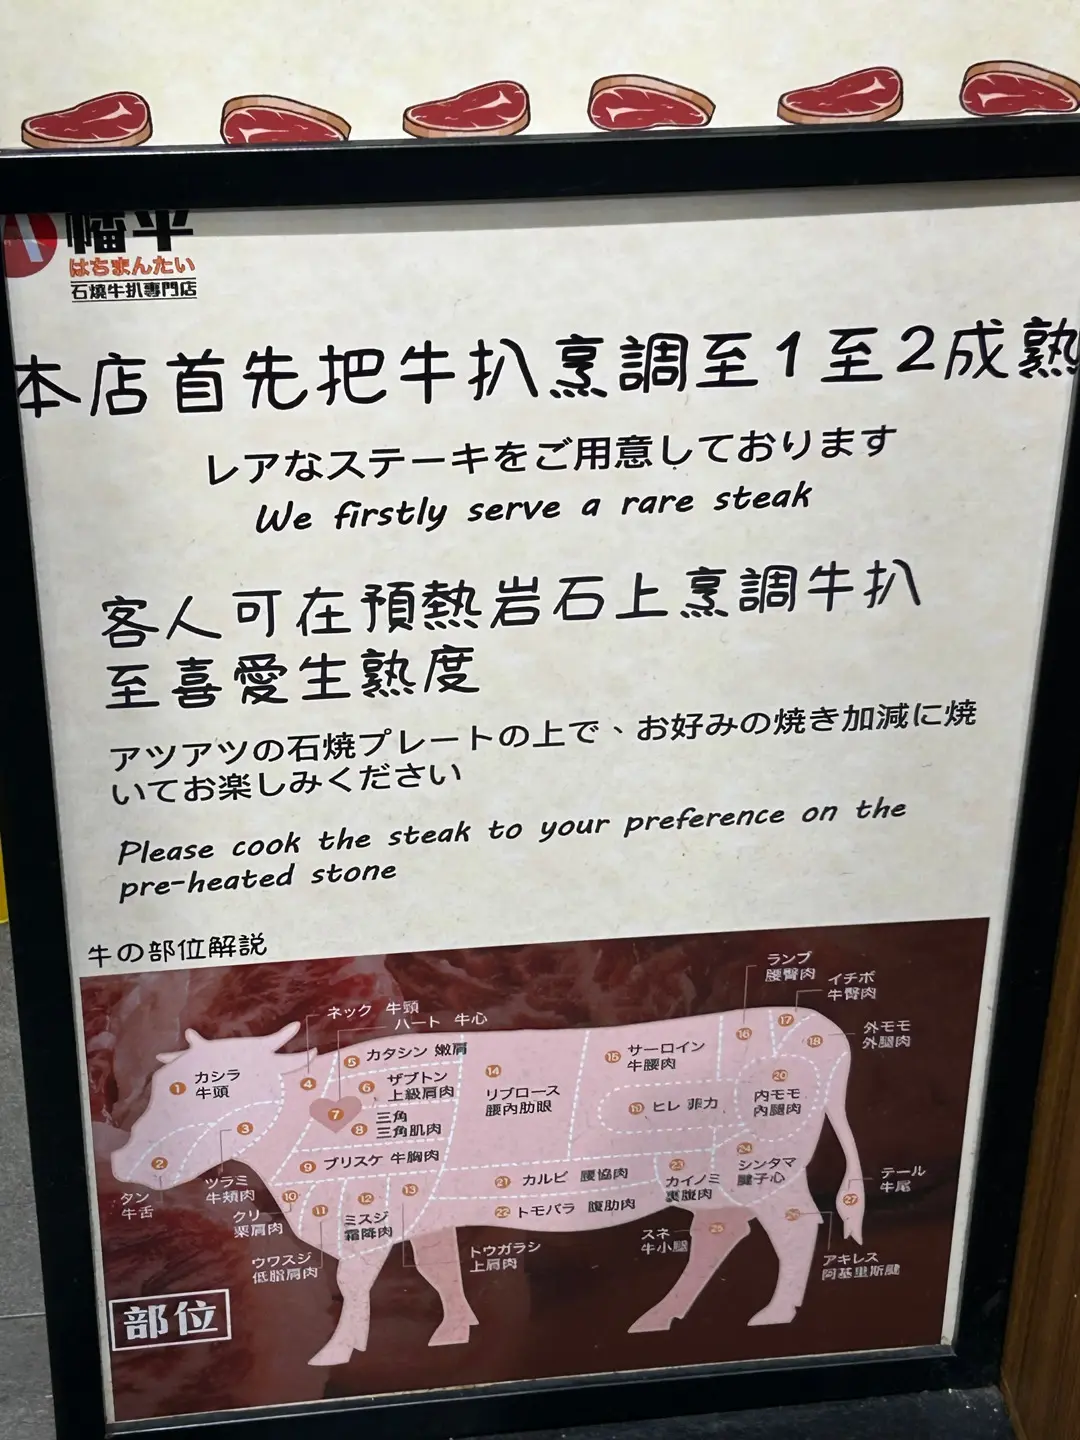 幡平
はちまんたい
石燒牛扒專門店
本店首先把牛扒烹調至1至2成熟
レアなステーキをご用意しております
We firstly serve a rare steak
客人可在預熱岩石上烹調牛扒
至喜愛生熟度
アツアツの石焼プレートの上で、お好みの焼き加減に焼
いてお楽しみください
Please cook the steak to your preference on the
pre-heated stone
牛の部位解説
ランプ
腰臀肉
イチボ
牛臀肉
ネック 牛頸
ハート 牛心
外モモ
外腿肉
1 カシラ
牛頭
2
タン
牛舌
3
ツラミ
牛頰肉
4
5 カタシン 嫩肩
6 ザブトン
上級肩肉
7
8 三角
三角肌肉
9 ブリスケ 牛胸肉
10
クリ
栗肩肉
11
ウワスジ
低脂肩肉
12
ミスジ
霜降肉
13
トウガラシ
上肩肉
14
リブロース
腰內肋眼
15 サーロイン
牛腰肉
16
17
18
19 ヒレ 菲力
20
内モモ
內腿肉
21 カルビ 腰協肉
22 トモバラ 腹肋肉
23
カイノミ
裏腹肉
24
シンタマ
腱子心
25
スネ
牛小腿
26
アキレス
阿基里斯腱
27
テール
牛尾
部位